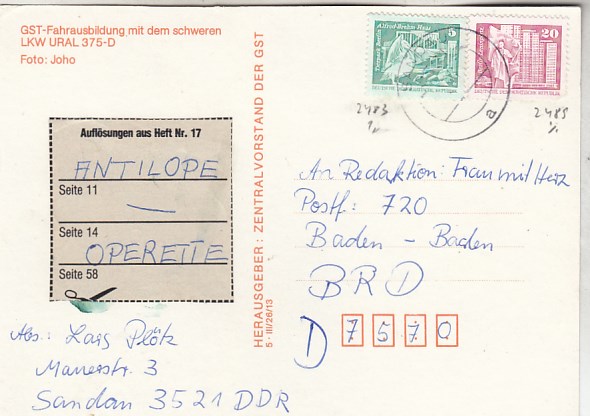 GST-Fahrausbildung mit dem schweren
LKW URAL 375-D
Foto: Joho
Auflösungen aus Heft Nr. 17
ANTILOPE
Seite 11
—
Seite 14
OPERETTE
Seite 58
Abs.: Lars Plötz
Mauerstr. 3
Sandau 3521 DDR
HERAUSGEBER: ZENTRALVORSTAND DER GST
5 · III/26/13
Alfred-Brehm-Haus
Tierpark Berlin
5
DEUTSCHE DEMOKRATISCHE REPUBLIK
20
DEUTSCHE DEMOKRATISCHE REPUBLIK
a
2483
2485
An Redaktion: Frau mit Herz
Postf: 720
Baden - Baden
BRD
D 7570